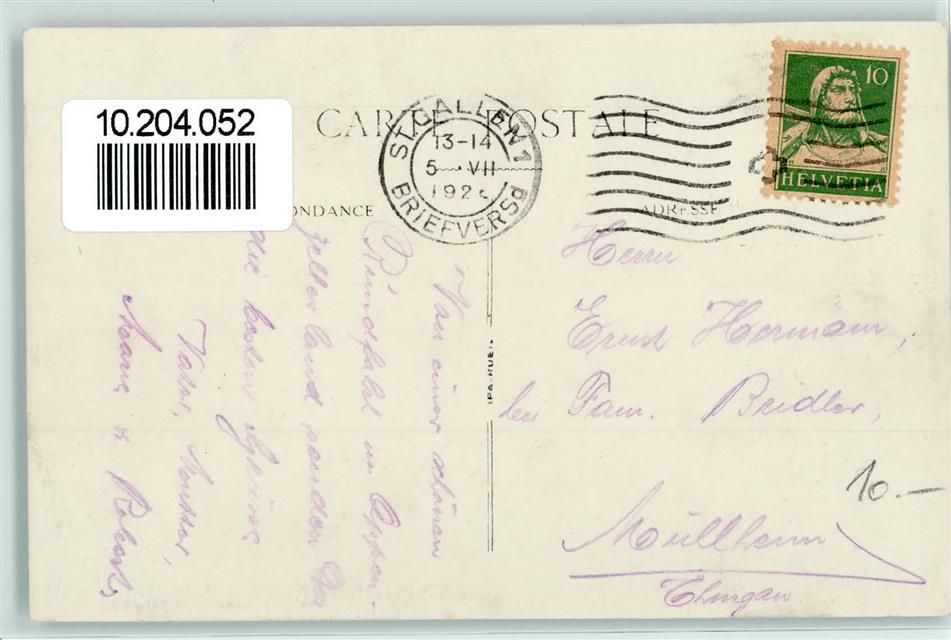 10.204.052
CARTE POSTALE
ST. GALLEN 1
13-14
5. VII
192
BRIEFVERSd
10
HELVETIA
ONDANCE
ADRESSE
Von einer schönen
Rundfahrt im Appen-
zellerland senden
die besten Grüsse
Vater, Mutter,
&
Herrn
Ernst Hermann,
bei Fam. Bridler,
Müllheim
Thurgau
10.—